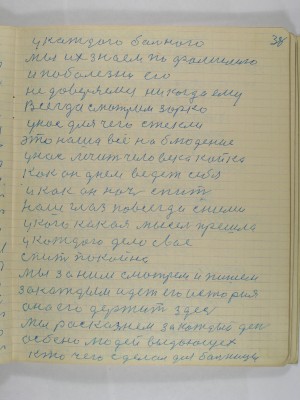 38
у каждого больного
мы их знаем по фамилию
и по болезни его
не доверяем никогда ему
Всегда смотрим зорко
у нас для чего стекли
это наша всё наблюдение
у нас лечит человека койка
как он днем ведет себя
и как он ноч спит
наш глаз повсегда с ними
у кого какая мысел пришла
у каждого дело свае
спит покойно
мы за ним смотрем и пишем
за каждым идет его история
она его держит здес
мы расскажем за каждый ден
особено людей выдающех
кто чего сделал для больницы